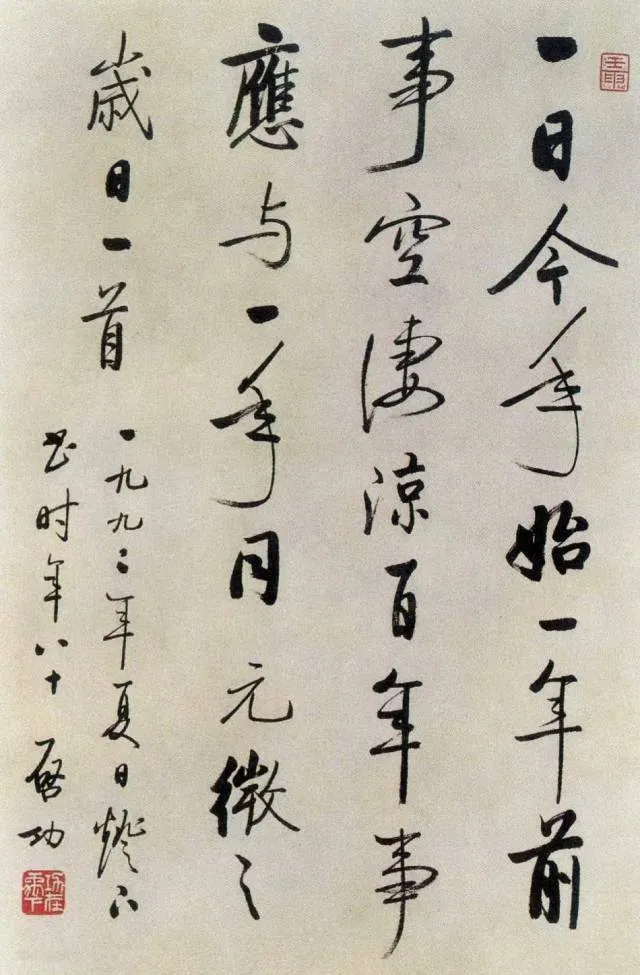 一日今年始一年前
事空淒涼百年事
應与一年同元微之
歳日一首
一九九二年夏日燈下
书时年八十 啓功